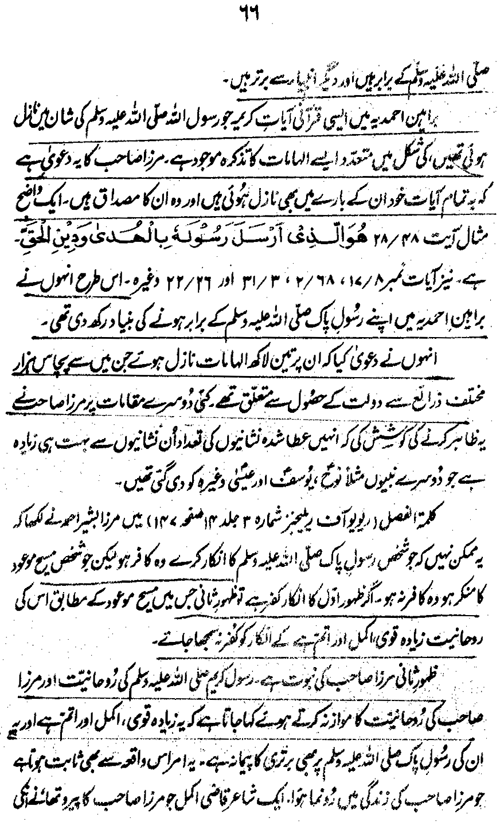 ٦٦
صلی اللہ علیہ وسلم کے برابر ہیں اور دیگر انبیاء سے برتر ہیں۔
براہین احمدیہ میں ایسی قرآنی آیات کریمہ جو رسول اللہ صلی اللہ علیہ وسلم کی شان میں نازل
ہوئی تھیں، کی شکل میں متعدد ایسے الہامات کا تذکرہ موجود ہے، مرزا صاحب کا یہ دعویٰ ہے
کہ یہ تمام آیات خود ان کے بارے میں بھی نازل ہوئی ہیں اور وہ ان کا مصداق ہیں۔ ایک واضح
مثال آیت ۲۸/۴۸ هُوَ الَّذِیْ اَرْسَلَ رَسُوْلَهٗ بِالْهُدٰی وَدِیْنِ الْحَقِّ۔
ہے۔ نیز آیات نمبر ۱۷/۸، ۲/۶۸، ۳۱/۳ اور ۲۲/۲۶ وغیرہ۔ اس طرح انہوں نے
براہین احمدیہ میں اپنے رسول پاک صلی اللہ علیہ وسلم کے برابر ہونے کی بنیاد رکھ دی تھی۔
انہوں نے دعویٰ کیا کہ ان پر تین لاکھ الہامات نازل ہوئے جن میں سے پچاس ہزار
مختلف ذرائع سے دولت کے حصول سے متعلق تھے۔ کئی دوسرے مقامات پر مرزا صاحب نے
یہ ظاہر کرنے کی کوشش کی کہ انہیں عطا شدہ نشانیوں کی تعداد اُن نشانیوں سے بہت ہی زیادہ
ہے جو دوسرے نبیوں مثلاً نوحؑ، یوسفؑ اور عیسیٰؑ وغیرہ کو دی گئی تھیں۔
کلمۃ الفصل (ریویو آف ریلیجنز شمارہ ۳ جلد ۱۴ صفحہ ۱۴۷) میں مرزا بشیر احمد نے لکھا کہ
یہ ممکن نہیں کہ جو شخص رسول پاک صلی اللہ علیہ وسلم کا انکار کرے وہ کافر ہو لیکن جو شخص مسیح موعود
کا منکر ہو وہ کافر نہ ہو۔ اگر ظہور اوّل کا انکار کفر ہے تو ظہور ثانی جس میں مسیح موعود کے مطابق اس کی
روحانیت زیادہ قوی، اکمل اور اتم ہے کے انکار کو کفر نہ سمجھا جائے۔
ظہور ثانی مرزا صاحب کی نبوت ہے۔ رسول کریم صلی اللہ علیہ وسلم کی رُوحانیت اور مرزا
صاحب کی رُوحانیت کا موازنہ کرتے ہوئے کہا جاتا ہے کہ یہ زیادہ قوی، اکمل اور اتم ہے اور یہ
ان کی رسول پاک صلی اللہ علیہ وسلم پر بھی برتری کا پیمانہ ہے۔ یہ امر اس واقعہ سے بھی ثابت ہوتا ہے
جو مرزا صاحب کی زندگی میں رُونما ہوا۔ ایک شاعر قاضی اکمل جو مرزا صاحب کا پیرو تھا نے انکی